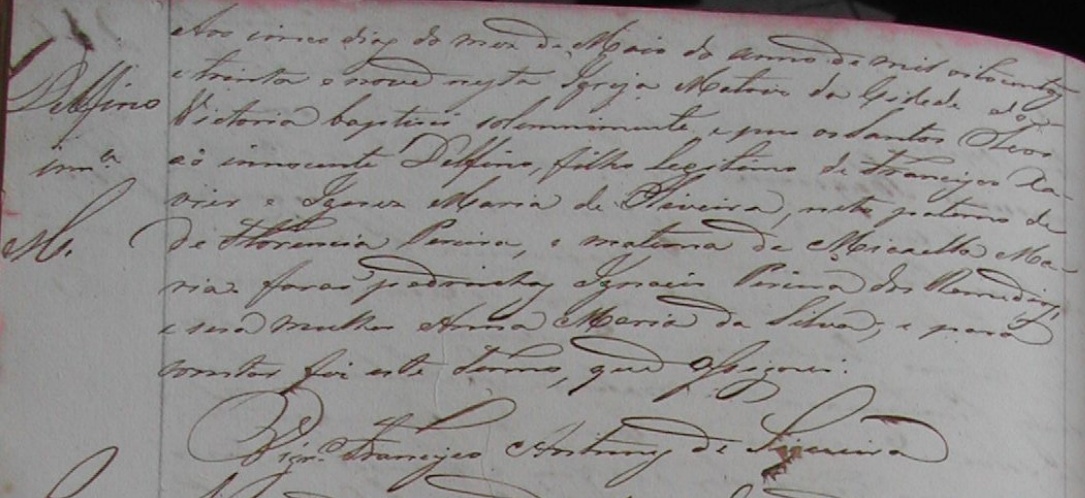 Aos cinco dias do mez de Maio do anno de mil oitocentos
e trinta e nove nesta Igreja Matris da Cidade da
Victoria baptisei solemnimente, e pus os Santos Oleos
ao innocente Delfino, filho legitimo de Francisco Xa-
vier e Ignez Maria de Oliveira, neto paterno de
de Florencia Pereira, e materna de Micaella Ma-
ria forão padrinhos Ignacio Pereira dos Remedios,
e sua mulher Anna Maria da Silva, e para
constar fiz este termo, que assignei.
Vigr.o Francisco Antunes de Siqueira
Delfino
inn.e
M.